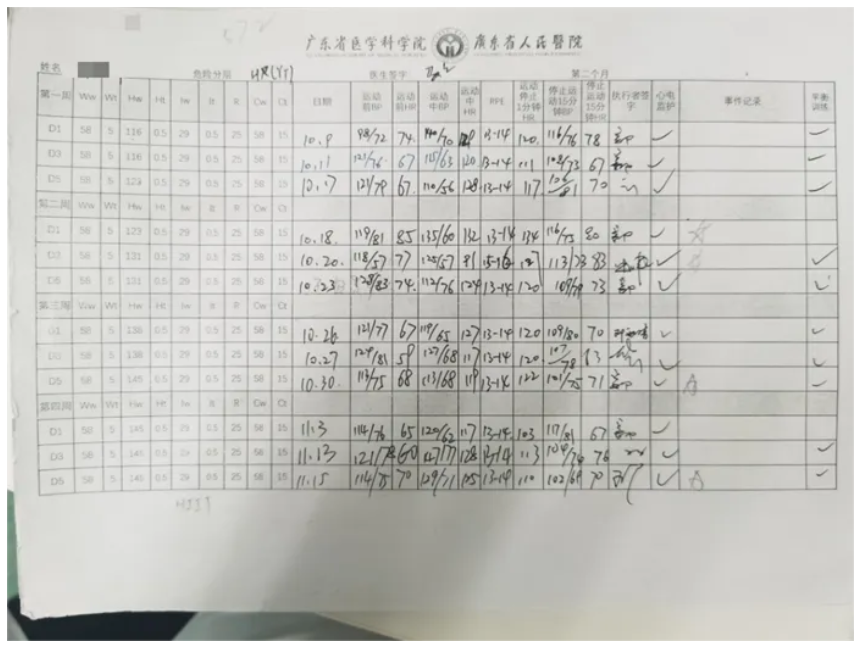 广东省医学科学院 廣東省人民醫院
姓名 危险分层 医生签字 第二个月
第一周 Ww Wt Hw Ht Iw It R Cw Ct 日期 运动前BP 运动前HR 运动中BP 运动中HR RPE 运动停止1分钟HR 停止运动15分钟BP 停止运动15分钟HR 执行者签字 心电监护 事件记录 平衡训练
D1 58 5 116 0.5 29 0.5 25 58 15 10.9 98/72 74. 13-14 120. 116/76 78 ✓ ✓
D3 58 5 116 0.5 29 0.5 25 58 15 10.11 121/76 67 120 13-14 111 108/73 67 ✓ ✓
D5 58 5 123 0.5 29 0.5 25 58 15 10.17 121/79 67. 110/56 128 13-14 117 70 ✓ ✓
第二周 Ww Wt Hw Ht Iw It R Cw Ct
D1 58 5 123 0.5 29 0.5 25 58 15 10.18. 119/81 85 135/60 132 13-14 134 116/75 80 ✓
D3 58 5 131 0.5 29 0.5 25 58 15 10.20. 118/57 77 125/57 113/73 83 ✓ ✓
D5 58 5 131 0.5 29 0.5 25 58 15 10.23 128/83 74. 112/76 124 13-14 120 109/79 73 ✓ ✓
第三周 Ww Wt Hw Ht Iw It R Cw Ct
D1 58 5 138 0.5 29 0.5 25 58 15 10.26 121/77 67 119/65 127 13-14 120 109/80 70 ✓ ✓
D3 58 5 138 0.5 29 0.5 25 58 15 10.27 124/81 58 127/68 117 13-14 120. 107/78 ✓ ✓
D5 58 5 145 0.5 29 0.5 25 58 15 10.30. 113/75 68 113/68 119 13-14 122 101/75 71 ✓ ✓
第四周 Ww Wt Hw Ht Iw It R Cw Ct
D1 58 5 145 0.5 29 0.5 25 58 15 11.3 114/76 65 120/62 117 13-14. 103 117/81 67 ✓
D3 58 5 145 0.5 29 0.5 25 58 15 11.13 121/78 60 127/77 128 13-14 113 76 ✓ ✓
D5 58 5 145 0.5 29 0.5 25 58 15 11.15 114/75 70 129/71 125 13-14 110 102/69 70 ✓ ✓